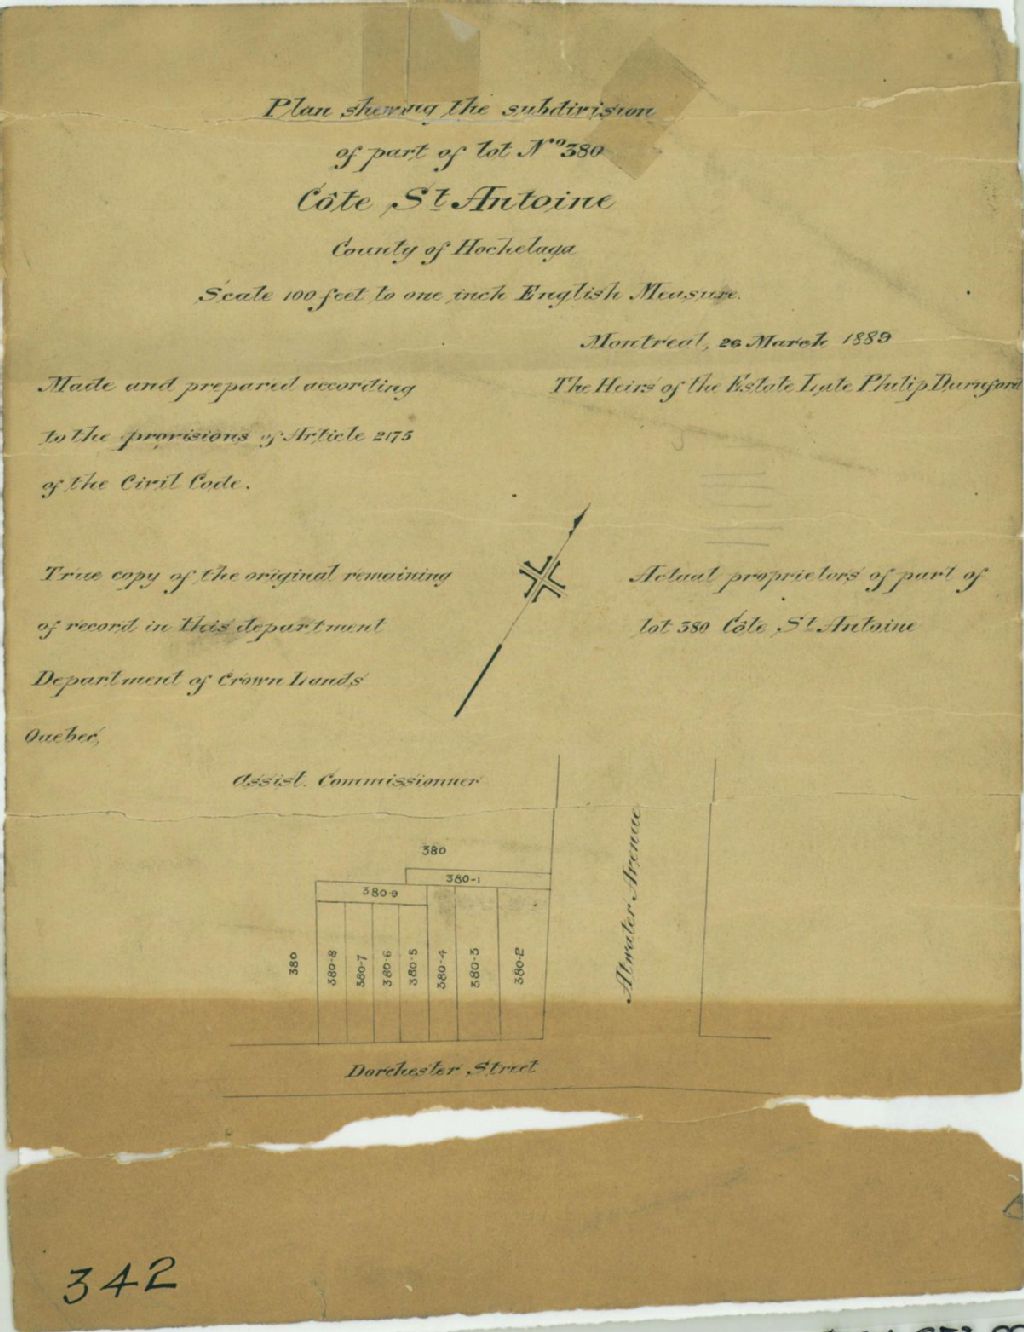 Plan shewing the subdivision
of part of lot No 380
Côte St Antoine
County of Hochelaga
Scale 100 feet to one inch English Measure.
Montreal, 26 March 1889
Made and prepared according
to the provisions of Article 2175
of the Civil Code.
The Heirs of the Estate Late Philip Durnford
True copy of the original remaining
of record in this department
Department of Crown Lands
Quebec,
Assist. Commissionner
Actual proprietors of part of
lot 380 Côte St Antoine
380
380-1
380-9
380
380-8
380-7
380-6
380-5
380-4
380-3
380-2
Atwater Avenue
Dorchester Street
342